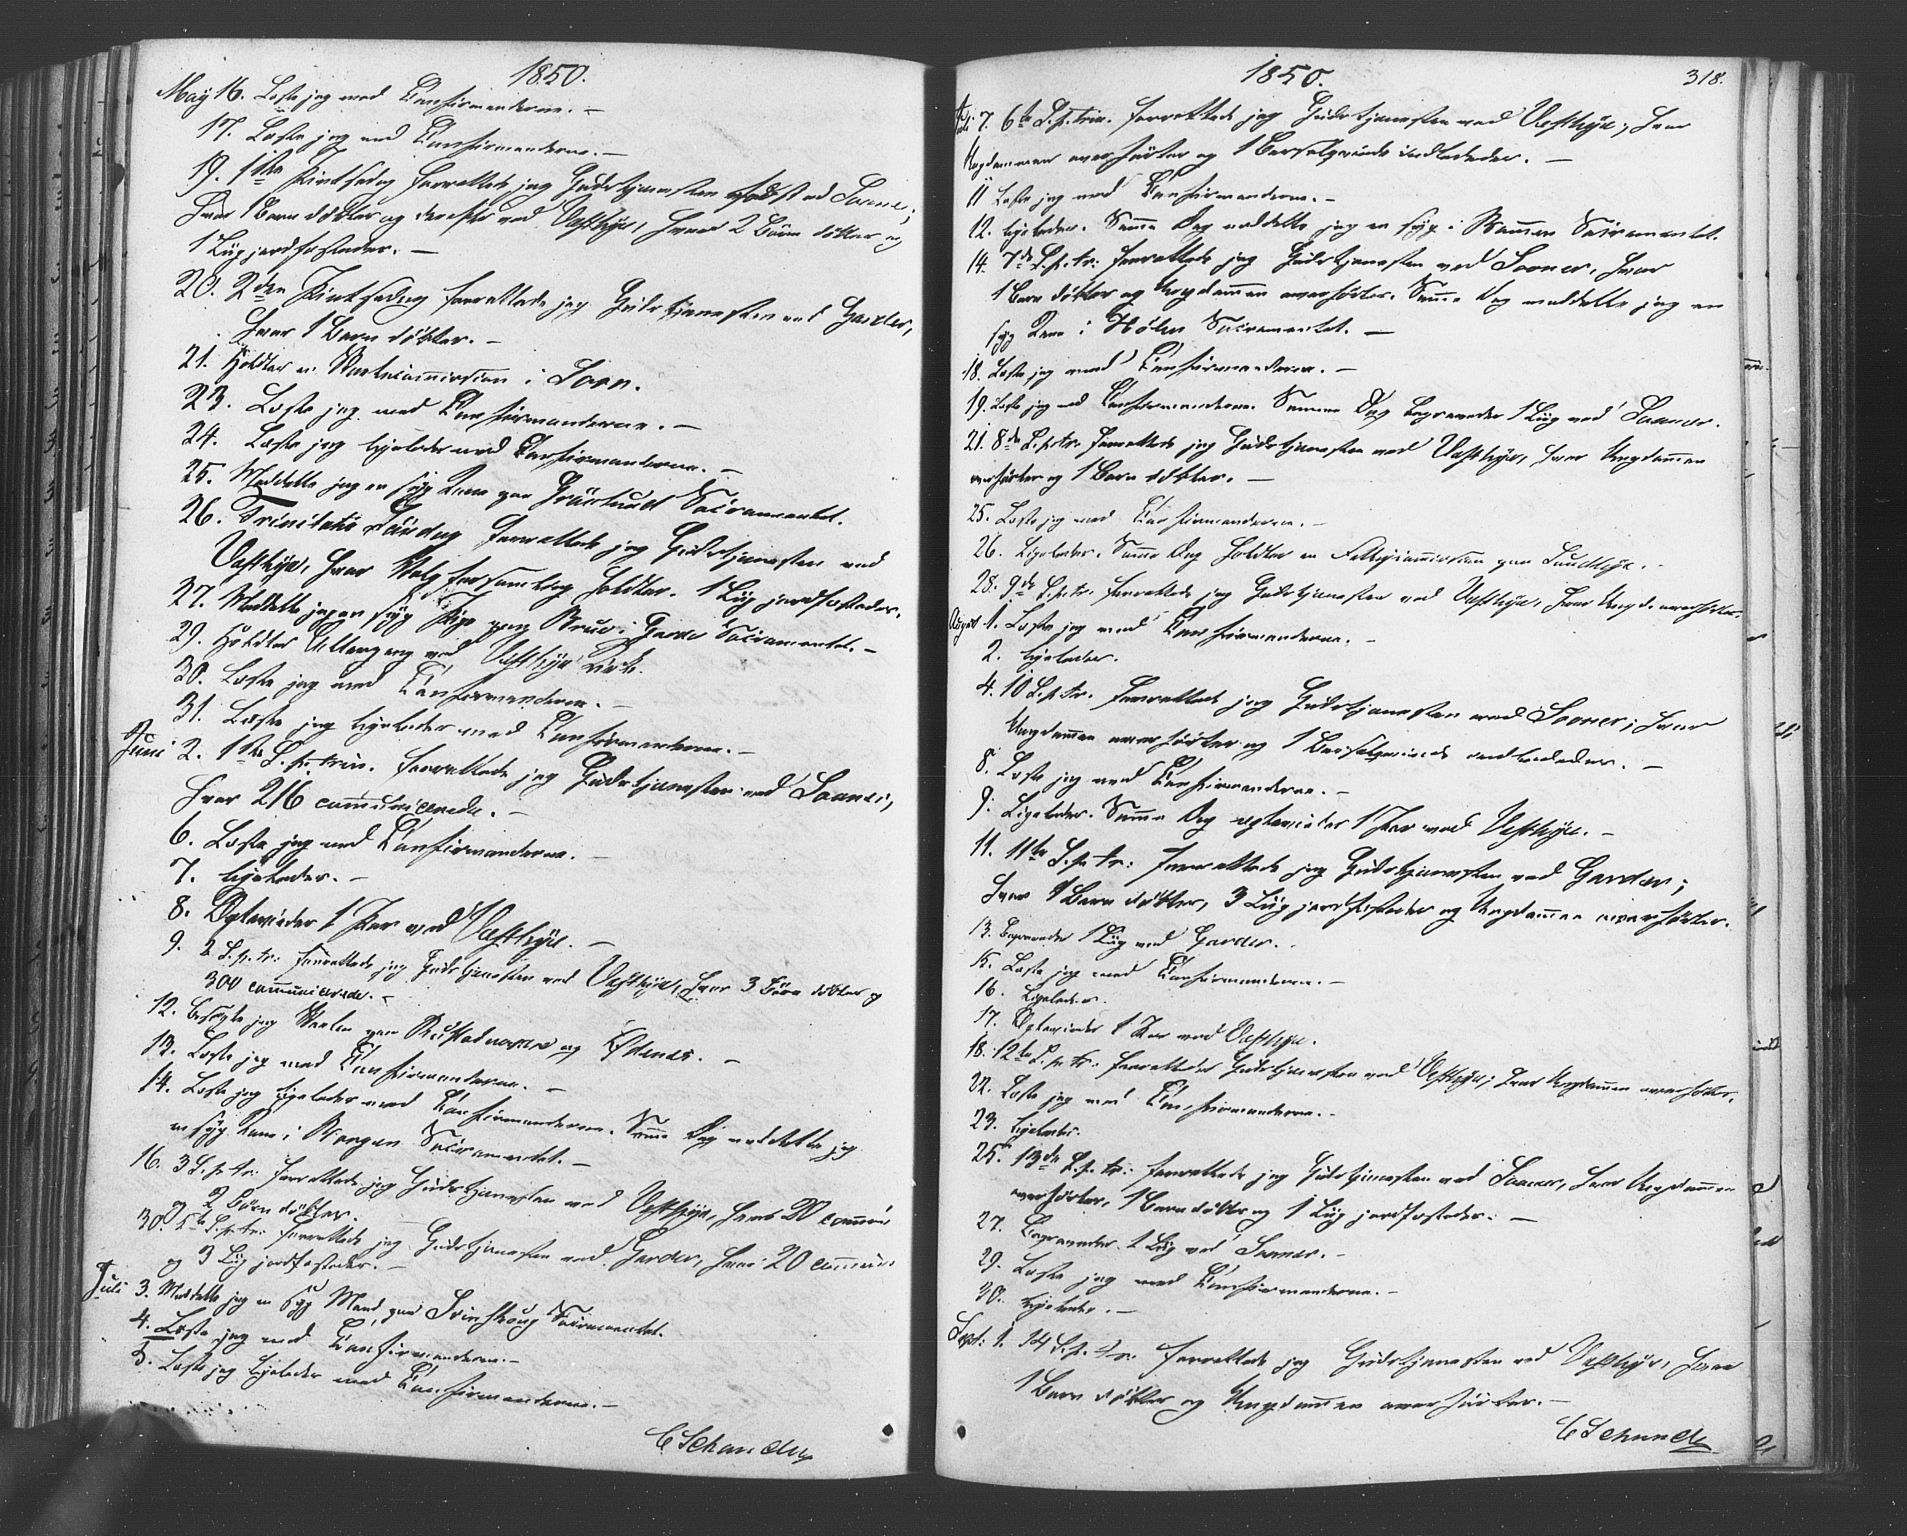 1850.
May 16. Læste jeg med Confirmanderne. –
17. Læste jeg med Confirmanderne. –
19. 1ste Pintsedag forrettede jeg Gudstjenesten først ved Soner;
hvor 1 Barn døbtes og derefter ved Vestbye, hvor 2 Børn døbtes og
1 Liig jordfæstedes. –
20. 2den Pintsedag forrettede jeg Gudstjenesten ved Garder,
hvor 1 Barn døbtes. –
21. Holdtes en Skolecommission i Soon.
23. Læste jeg med Confirmanderne. –
24. Læste jeg ligeledes med Confirmanderne. –
25. Meddelte jeg en syg Kone paa Sacramentet.
26. Trinitatis Søndag forrettede jeg Gudstjenesten ved
Vestbye, hvor Valgforsamling holdtes. 1 Liig jordfæstedes.
27. Meddelte jeg en syg Pige paa i Garder Sacramentet. –
29. Holdtes Altergang ved Vestbye Kirke.
30. Læste jeg med Confirmanderne. –
31. Læste jeg ligeledes med Confirmanderne. –
Juni 2. 1ste S. p. trin. forrettede jeg Gudstjenesten ved Soner,
hvor 216 communicerede. –
6. Læste jeg med Confirmanderne. –
7. Ligeledes. –
8. Ægtevieder 1 Par ved Vestbye. –
9. 2 S. p. tr. forrettede jeg Gudstjenesten ved Vestbye, hvor 3 Børn døbtes og
300 communicerede. –
12. Besøgte jeg Skolen paa og Ødenes. –
13. Læste jeg med Confirmanderne. –
14. Læste jeg ligeledes med Confirmanderne. Samme Dag meddelte jeg
en syg Kone i Sacramentet. –
16. 3 S. p. tr. forrettede jeg Gudstjenesten ved Vestbye, hvor 20
og 2 Børn døbtes.
30. 5te S. p. tr. forrettede jeg Gudstjenesten ved Garder, hvor 20
og 3 Liig jordfæstedes. –
Juli 3. Meddelte jeg en syg Mand paa Sacramentet.
4. Læste jeg med Confirmanderne. –
5. Læste jeg ligeledes med Confirmanderne. –
1850. 318.
Juli 7. 6te S. p. trin. forrettede jeg Gudstjenesten ved Vestbye, hvor
Ungdommen overhørtes og 1 Barselqvinde indlededes. –
11 Læste jeg med Confirmanderne. –
12. Ligeledes. Samme Dag meddelte jeg en syg i Sacramentet.
14. 7de S. p. tr. forrettede jeg Gudstjenesten ved Sooner, hvor
1 Barn døbtes og Ungdommen overhørtes. Samme Dag meddelte jeg en
syg Kone i Hølen Sacramentet. –
18. Læste jeg med Confirmanderne. –
19. Læste jeg med Confirmanderne. Samme Dag begravedes 1 Liig ved Sooner.
21. 8de S. p. tr. forrettede jeg Gudstjenesten ved Vestbye, hvor Ungdommen
overhørtes og 1 Barn døbtes. –
25. Læste jeg med Confirmanderne. –
26. Ligeledes. Samme Dag holdtes en Fattigcommission paa Sundbye. –
28. 9de S. p. tr. forrettede jeg Gudstjenesten ved Vestbye, hvor Ungd. overhørtes.
August 1. Læste jeg med Confirmanderne. –
2. Ligeledes.
4. 10 S. p. tr. forrettede jeg Gudstjenesten ved Sooner, hvor
Ungdommen overhørtes og 1 Barselqvinde indlededes. –
8. Læste jeg med Confirmanderne. –
9. Ligeledes. Samme Dag ægteviedes 1 Par ved Vestbye. –
11. 11te S. p. tr. forrettede jeg Gudstjenesten ved Garder;
hvor 1 Barn døbtes, 3 Liig jordfæstedes og Ungdommen overhørtes.
13. Begravedes 1 Liig ved Garder. –
15. Læste jeg med Confirmanderne. –
16. Ligeledes.
17. Ægtevieder 1 Par ved Vestbye.
18. 12te S. p. tr. forrettedes Gudstjenesten ved Vestbye, hvor Ungdommen overhørtes.
22. Læste jeg med Confirmanderne. –
23. Ligeledes.
25. 13de S. p. tr. forrettede jeg Gudstjenesten ved Sooner, hvor Ungdommen
overhørtes, 1 Barn døbtes og 1 Liig jordfæstedes. –
27. Begravedes 1 Liig ved Sooner. –
29. Læste jeg med Confirmanderne. –
30. Ligeledes. –
Sept: 1. 14 S. p. tr. forrettede jeg Gudstjenesten ved Vestbye, hvor
1 Barn døbtes og Ungdommen overhørtes. –